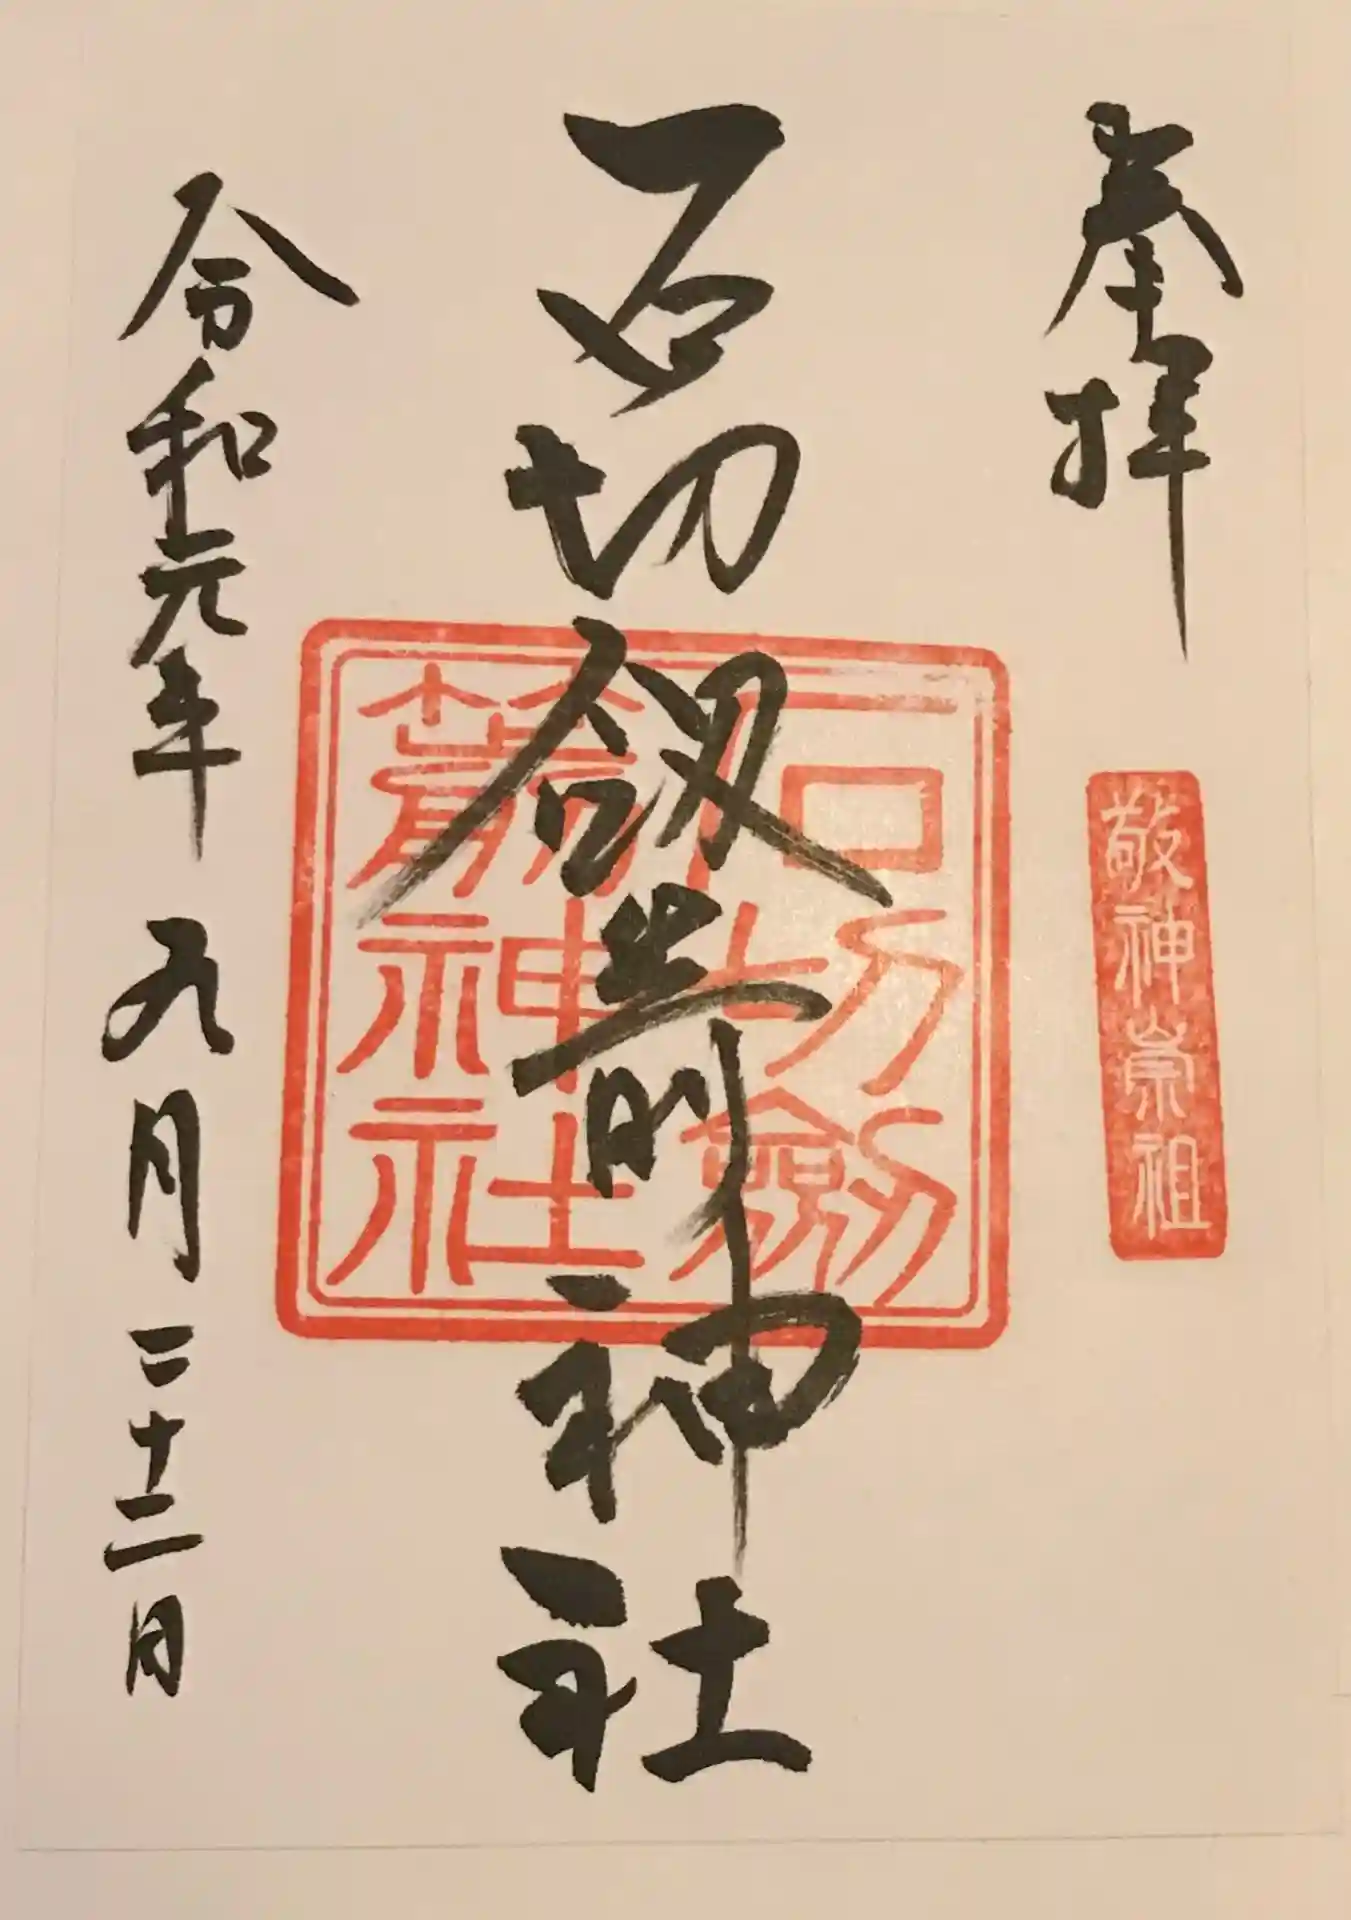 奉拝
敬神崇祖
石切劔箭神社
石切劔
箭神社
令和元年 九月二十二日